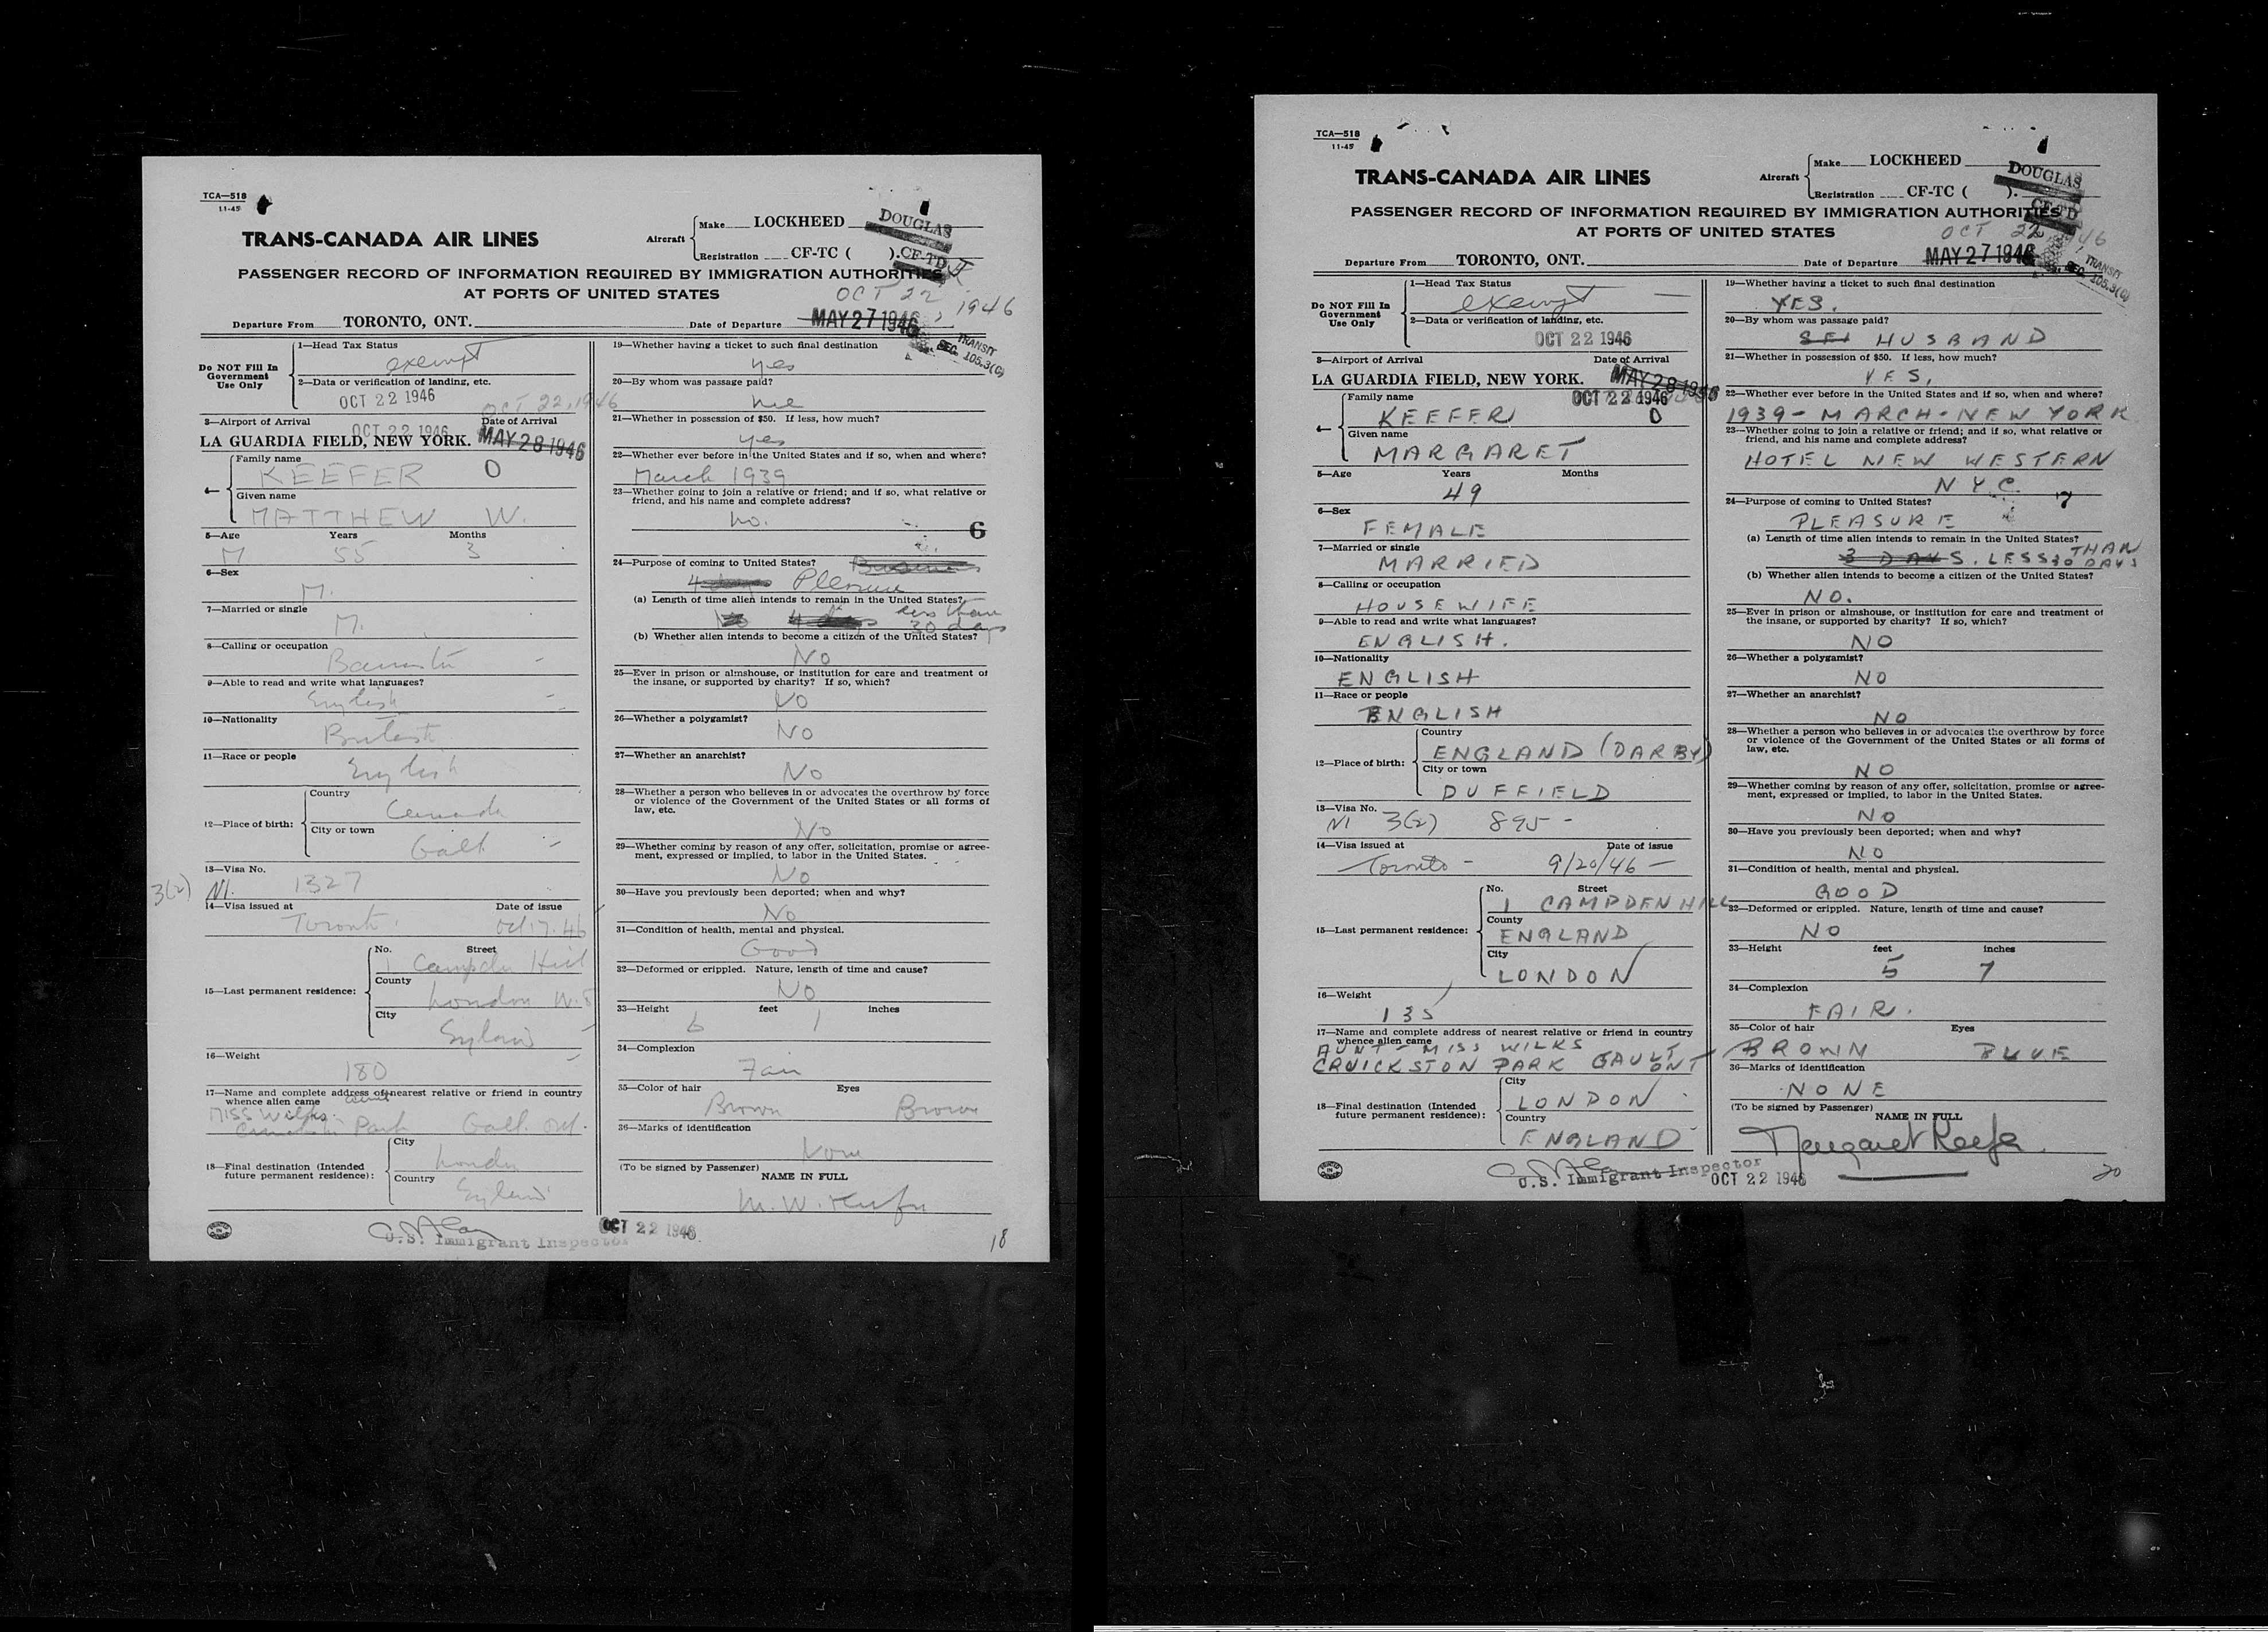 TCA—518
11-45
TRANS-CANADA AIR LINES
Aircraft
Make LOCKHEED
DOUGLAS
Registration CF-TC ( ). CF-TD
PASSENGER RECORD OF INFORMATION REQUIRED BY IMMIGRATION AUTHORITIES
AT PORTS OF UNITED STATES
OCT 22, 1946
Departure From TORONTO, ONT.
Date of Departure MAY 27 1946
TRANSIT
SEC. 105.3(C)
Do NOT Fill In Government Use Only
1—Head Tax Status
exempt
2—Data or verification of landing, etc.
OCT 22 1946
OCT 22, 1946
3—Airport of Arrival
Date of Arrival
OCT 22 1946
LA GUARDIA FIELD, NEW YORK. MAY 28 1946
Family name
KEEFER O
Given name
MATTHEW W.
5—Age Years Months
M 55 3
6—Sex
M.
7—Married or single
M.
8—Calling or occupation
Barrister
9—Able to read and write what languages?
English
10—Nationality
British
11—Race or people
English
12—Place of birth:
Country
Canada
City or town
Galt
13—Visa No.
3(2) NI. 1327
14—Visa issued at Date of issue
Toronto Oct 17. 46
15—Last permanent residence:
No. Street
1 Campden Hill
County
London W.8
City
England
16—Weight
180
17—Name and complete address of nearest relative or friend in country
whence alien came aunt
MISS Wilks.
Park Galt. Ont.
18—Final destination (Intended
future permanent residence):
City
London
Country
England
U.S. Immigrant Inspector
OCT 22 1946
19—Whether having a ticket to such final destination
yes
20—By whom was passage paid?
me
21—Whether in possession of $50. If less, how much?
yes
22—Whether ever before in the United States and if so, when and where?
March 1939
23—Whether going to join a relative or friend; and if so, what relative or
friend, and his name and complete address?
no.
6
24—Purpose of coming to United States? Business
4 days Pleasure
(a) Length of time alien intends to remain in the United States?
4 days less than
30 days
(b) Whether alien intends to become a citizen of the United States?
No
25—Ever in prison or almshouse, or institution for care and treatment of
the insane, or supported by charity? If so, which?
NO
26—Whether a polygamist?
No
27—Whether an anarchist?
No
28—Whether a person who believes in or advocates the overthrow by force
or violence of the Government of the United States or all forms of
law, etc.
No
29—Whether coming by reason of any offer, solicitation, promise or agree-
ment, expressed or implied, to labor in the United States.
No
30—Have you previously been deported; when and why?
No
31—Condition of health, mental and physical.
Good
32—Deformed or crippled. Nature, length of time and cause?
No
33—Height feet inches
6 1
34—Complexion
Fair
35—Color of hair Eyes
Brown Brown
36—Marks of identification
None
(To be signed by Passenger)
NAME IN FULL
M. W. Keefer
18
TCA—518
11-45
TRANS-CANADA AIR LINES
Aircraft
Make LOCKHEED
DOUGLAS
Registration CF-TC ( ).
CF-TD
PASSENGER RECORD OF INFORMATION REQUIRED BY IMMIGRATION AUTHORITIES
AT PORTS OF UNITED STATES
OCT 22, 1946
Departure From TORONTO, ONT.
Date of Departure MAY 27 1946
TRANSIT
SEC. 105.3(C)
Do NOT Fill In Government Use Only
1—Head Tax Status
exempt
2—Data or verification of landing, etc.
OCT 22 1946
3—Airport of Arrival
Date of Arrival
LA GUARDIA FIELD, NEW YORK. MAY 28 1946
OCT 22 1946
Family name
KEEFER O
Given name
MARGARET
5—Age Years Months
49
6—Sex
FEMALE
7—Married or single
MARRIED
8—Calling or occupation
HOUSEWIFE
9—Able to read and write what languages?
ENGLISH.
10—Nationality
ENGLISH
11—Race or people
ENGLISH
12—Place of birth:
Country
ENGLAND (DARBY)
City or town
DUFFIELD
13—Visa No.
NI 3(2) 895 -
14—Visa issued at Date of issue
Toronto - 9/20/46 -
15—Last permanent residence:
No. Street
1 CAMPDEN HILL
County
ENGLAND
City
LONDON
16—Weight
135
17—Name and complete address of nearest relative or friend in country
whence alien came
AUNT - MISS WILKS
CRUICKSTON PARK GAULT ONT
18—Final destination (Intended
future permanent residence):
City
LONDON
Country
ENGLAND
U.S. Immigrant Inspector
OCT 22 1946
19—Whether having a ticket to such final destination
YES.
20—By whom was passage paid?
SEL HUSBAND
21—Whether in possession of $50. If less, how much?
YES.
22—Whether ever before in the United States and if so, when and where?
1939 - MARCH - NEW YORK
23—Whether going to join a relative or friend; and if so, what relative or
friend, and his name and complete address?
HOTEL NEW WESTERN
N Y C.
24—Purpose of coming to United States? 7
PLEASURE
(a) Length of time alien intends to remain in the United States?
3 DAYS. LESS THAN
30 DAYS
(b) Whether alien intends to become a citizen of the United States?
NO.
25—Ever in prison or almshouse, or institution for care and treatment of
the insane, or supported by charity? If so, which?
NO
26—Whether a polygamist?
NO
27—Whether an anarchist?
NO
28—Whether a person who believes in or advocates the overthrow by force
or violence of the Government of the United States or all forms of
law, etc.
NO
29—Whether coming by reason of any offer, solicitation, promise or agree-
ment, expressed or implied, to labor in the United States.
NO
30—Have you previously been deported; when and why?
NO
31—Condition of health, mental and physical.
GOOD
32—Deformed or crippled. Nature, length of time and cause?
NO
33—Height feet inches
5 7
34—Complexion
FAIR.
35—Color of hair Eyes
BROWN BLUE
36—Marks of identification
NONE
(To be signed by Passenger)
NAME IN FULL
Margaret Keefer
20